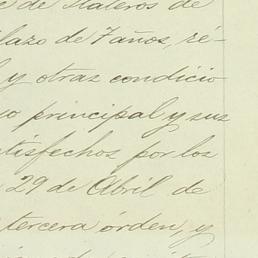 de Plateros de
plazo de 7 años, ré-
y otras condicio
principal y sus
tisfechos por los
29 de Abril de
tercera órden, y